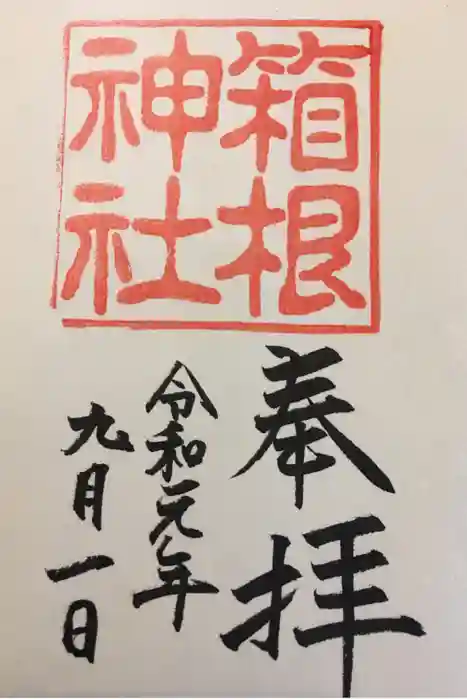 箱根
神社
奉拝
令和元年
九月一日